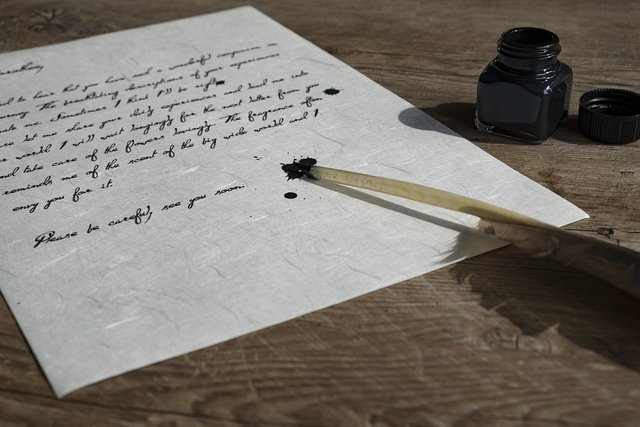 to hear that you have had a wonderful companion on
The breathtaking descriptions of your experiences
me. Sometimes I think I'll to
me share your daily experiences and lead me into
world. I will wait longingly for the next letter from you
and take care of the flowers lovingly. The fragrance often
reminds me of the scent of the big wide world and I
envy you for it.
Please be careful, see you soon